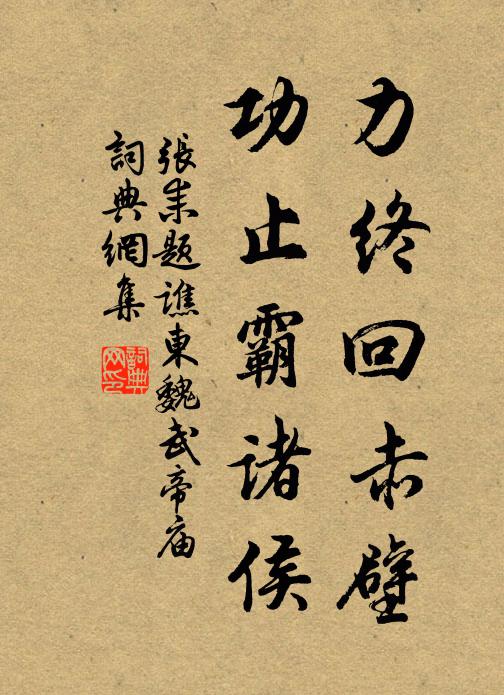 力终回赤壁
功止霸诸侯
張耒題譙東魏武帝庙
詞典網集
詞典网印